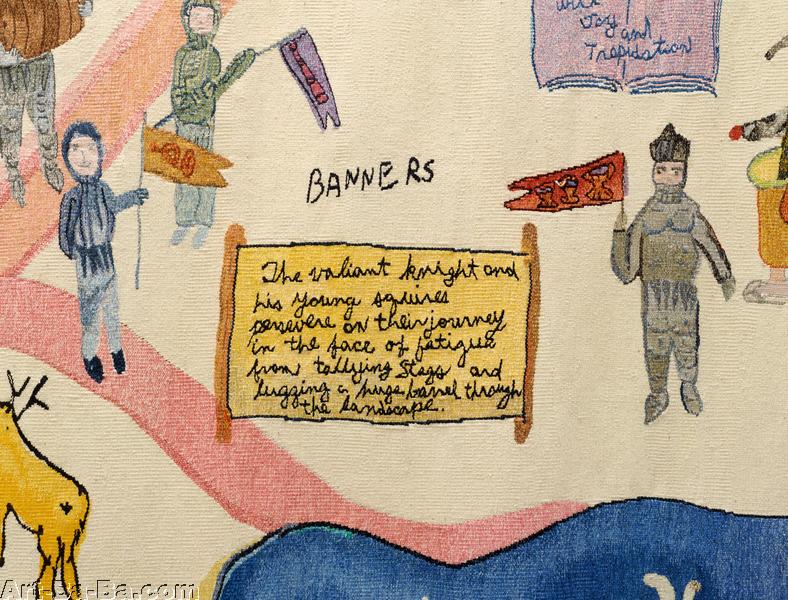 with
Joy
and
Trepidation
BANNERS
The valiant knight and
his young squires
persevere on their journey
in the face of fatigue
from tallying stags and
lugging a huge barrel through
the landscape.
Art-Ba-Ba.com